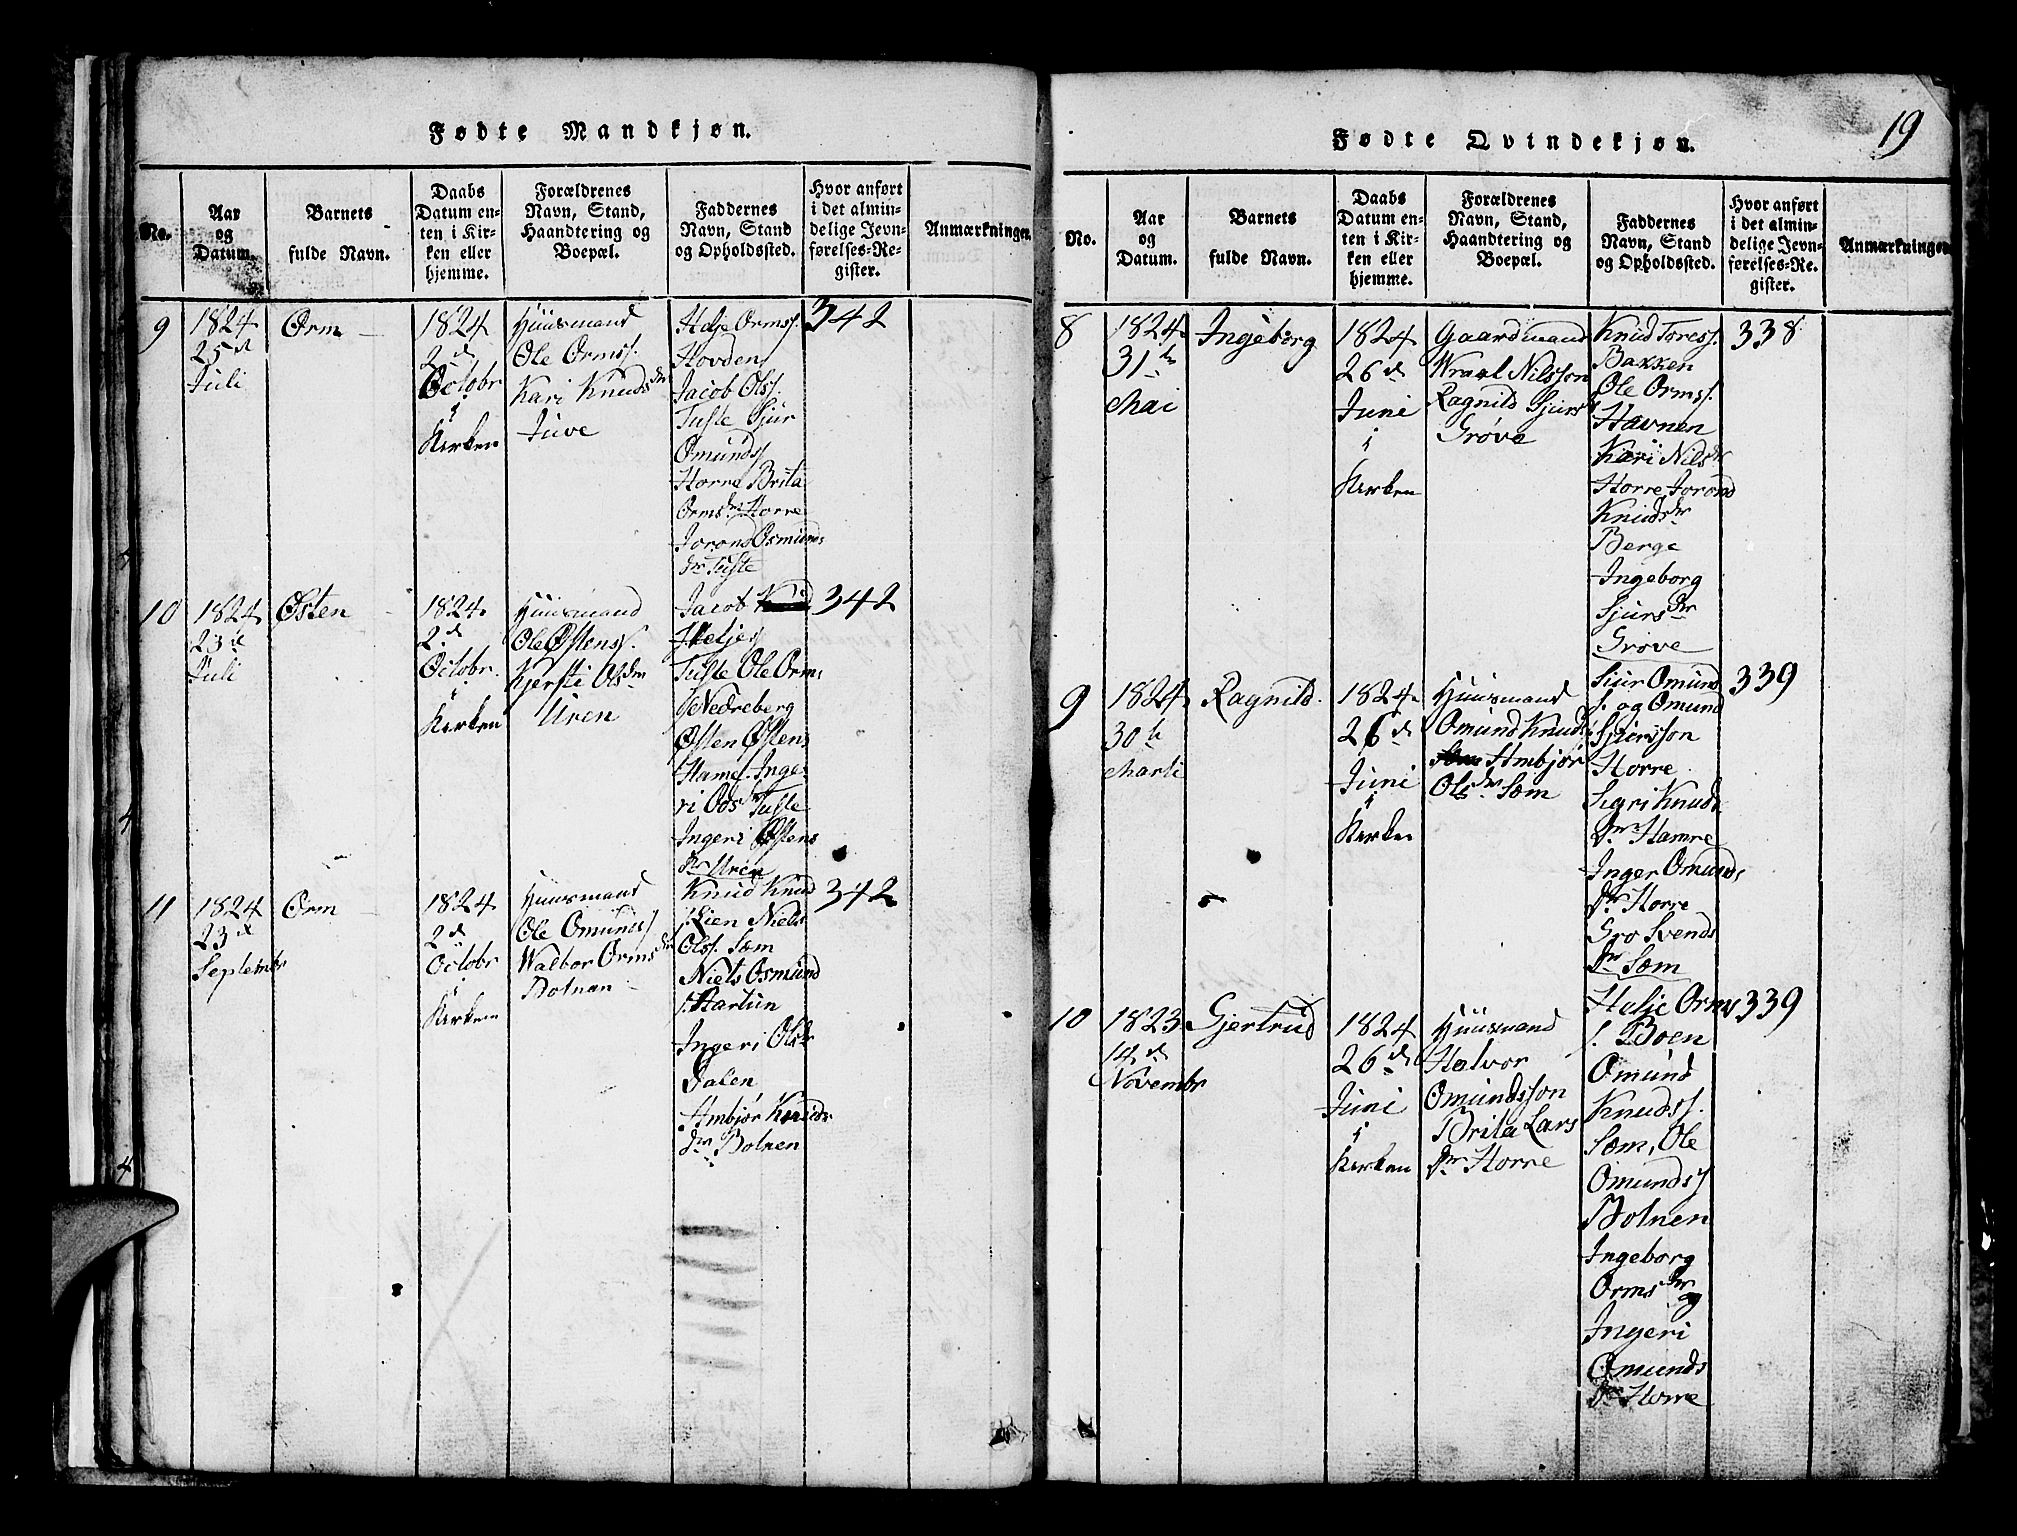 Fødte Mandkjøn.
No.
Aar
og
Datum.
Barnets
fulde Navn.
Daabs
Datum en-
ten i Kir-
ken eller
hjemme.
Forældrenes
Navn, Stand,
Haandtering og
Boepæl.
Faddernes
Navn, Stand
og Opholdssted.
Hvor anført
i det almin-
delige Jevn-
førelses-Re-
gister.
Anmærkninger.
9
1824
25de
Juli
Orm
1824
2d
Octobr
i
Kirken
Huusmand
Ole Ormss.
Kari Knudsdr
Juve
Helje Ormss.
Hovden
Jacob Olss.
Tufte Sjur
Omundss
Horre Brita
Ormsdr Horre
Joron Osmunds
dr Tufte
342
10
1824
23de
Juli
Østen
1824
2d
Octobr.
i
Kirken
Huusmand
Ole Østenss.
Kjersti Olsdr
Uren
Jacob
Heljes
Tufte Ole Orms
s Nedreberg
Østen Østens
Hamr Inge
ri Odsdr Tufte
Ingeri Østens
dr Uren
342
11
1824
23de
Septembr
Orm
1824
2d
Octobr
Kirken
Huusmand
Ole Omundss
Walbor Ormsdr
Botnen
Knud Knud
s. Lien Niels
Olss. Sæm
Niels Osmund
s. Hartun
Ingeri Olsdr
Dalen
Ambjør Knuds
dr Botnen
342
Fødte Qvindekjøn.
19
No.
Aar
og
Datum.
Barnets
fulde Navn.
Daabs
Datum en-
ten i Kir-
ken eller
hjemme.
Forældrenes
Navn, Stand,
Haandtering og
Boepæl.
Faddernes
Navn, Stand
og Opholdssted.
Hvor anført
i det almin-
delige Jevn-
førelses-Re-
gister.
Anmærkninger
8
1824
31te
Mai
Ingeborg
1824
26d
Juni
i
Kirken
Gaardmand
Wraal Nilsson
Ragnild Sjurs
Grøve
Knud Toress.
Bakken
Ole Ormss.
Havnen
Kari Nilsdr
Horre Jorond
Knudsdr
Berge
Ingeborg
Sjursdr
Grøve
338
9
1824
30te
Marti
Ragnild.
1824
26d
Juni
i
Kirken
Huusmand
Omund Knuds
Ambjør
Olsdr Sæm
Siur Omund
s. og Omund
Sjursson
Horre
Sigri Knuds
dr Hamre
Inger Omunds
dr Horre
Gro Svends
dr Sæm
339
10
1823
14d
Novembr
Gjertrud
1824
26d
Juni
i
Kirken
Huusmand
Halvor
Omundsson
Brita Lars
dr Horre
Helje Orms
s. Boen
Omund
Knudss.
Sæm, Ole
Omundss
Botnen
Ingeborg
Ormsdr
og
Ingeri
Omunds
dr Horre
339